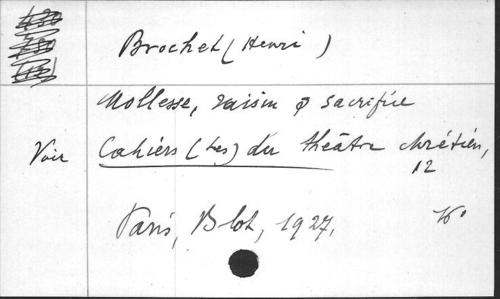 Brochet (Henri)
Mollesse, raison & sacrifice
Voir Cahiers (Les) du théâtre chrétien, 12
Paris, Blot, 1927.